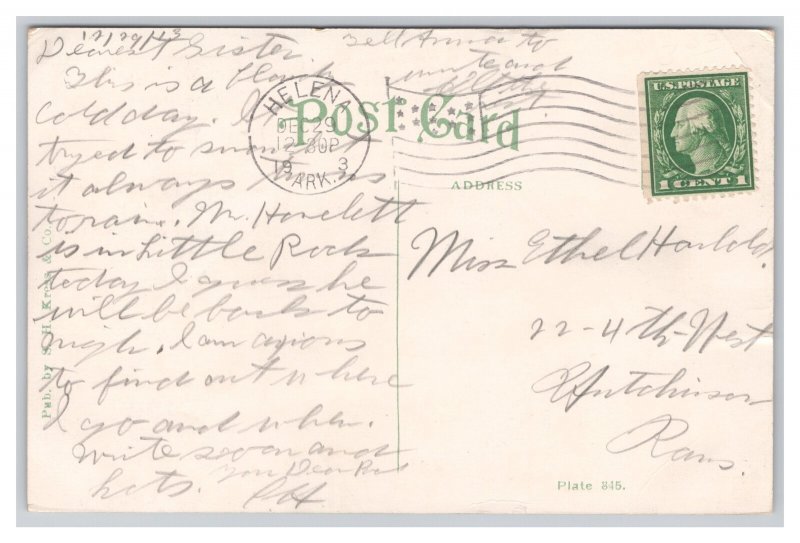 12/29/13
Dearest Sister.
This is a blank
cold day. It
tried to snow but
it always turns
to rain. Mr. Howlett
is in Little Rock
today I guess he
will be back to
nigh. I am anxious
to find out where
I go and when.
Write soon and
lots. Your Dear Bud
Tell Anna to
write and
HELENA
DEC 29
12 30P
19 3
ARK.
Post Card
ADDRESS
U.S. POSTAGE
1 CENT 1
Miss Ethel
22-4th-West
Hutchinson
Kans.
Pub. by S. H. Kress & Co.
Plate 845.